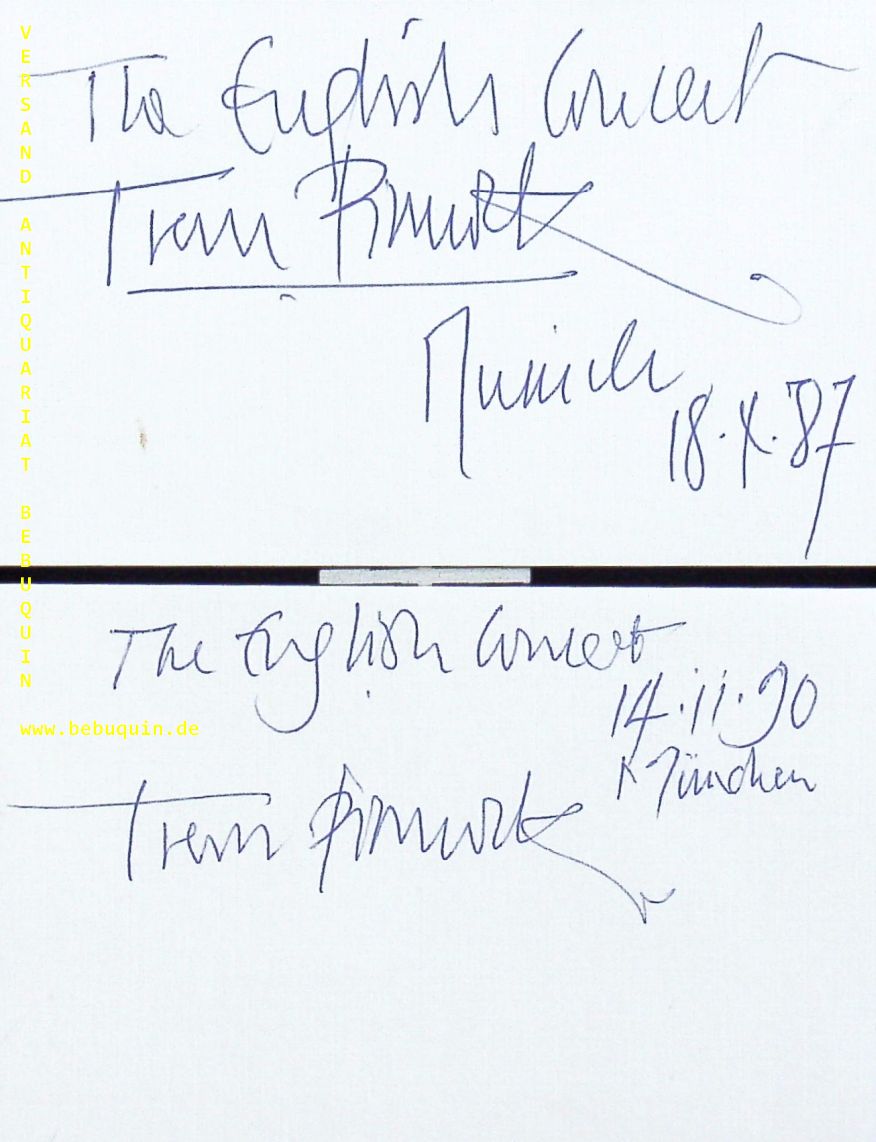 The English Concert
Trevor Pinnock
Munich
18.X.'87
The English Concert
14.11.90
München
Trevor Pinnock
VERSAND ANTIQUARIAT BEBUQUIN
www.bebuquin.de